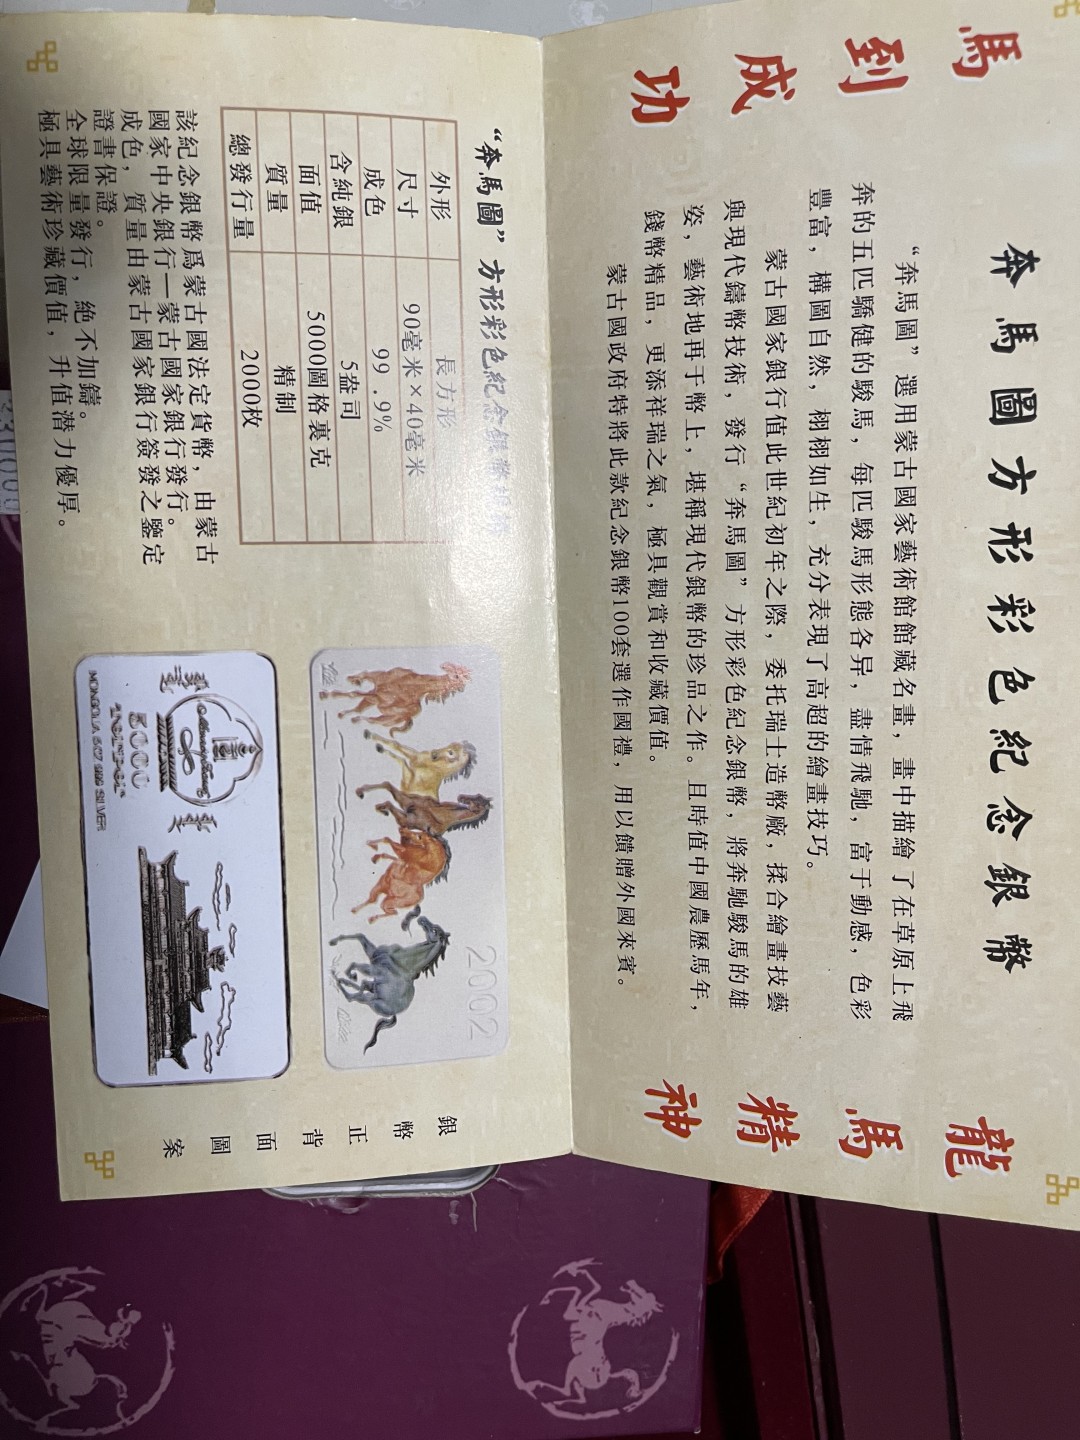 馬到成功
龍馬精神
奔馬圖方形彩色紀念銀幣
“奔馬圖”選用蒙古國家藝術館館藏名畫，畫中描繪了在草原上飛
奔的五匹驕健的駿馬，每匹駿馬形態各异，盡情飛馳，富于動感，色彩
豐富，構圖自然，栩栩如生，充分表現了高超的繪畫技巧。
蒙古國家銀行值此世紀初年之際，委托瑞士造幣廠，揉合繪畫技藝
與現代鑄幣技術，發行“奔馬圖”方形彩色紀念銀幣，將奔馳駿馬的雄
姿，藝術地再于幣上，堪稱現代銀幣的珍品之作。且時值中國農歷馬年，
錢幣精品，更添祥瑞之氣，極具觀賞和收藏價值。
蒙古國政府特將此款紀念銀幣100套選作國禮，用以饋贈外國來賓。
“奔馬圖”方形彩色紀念銀幣
外形 長方形
尺寸 90毫米×40毫米
成色 99.9%
含純銀 5盎司
面值 5000圖格裏克
質量 精制
總發行量 2000枚
該紀念銀幣爲蒙古國法定貨幣，由蒙古
國家中央銀行—蒙古國家銀行發行。
成色，質量由蒙古國家銀行簽發之鑒定
證書保證。
全球限量發行，絶不加鑄。
極具藝術珍藏價值，升值潜力優厚。
2002
5000
銀幣正背面圖案